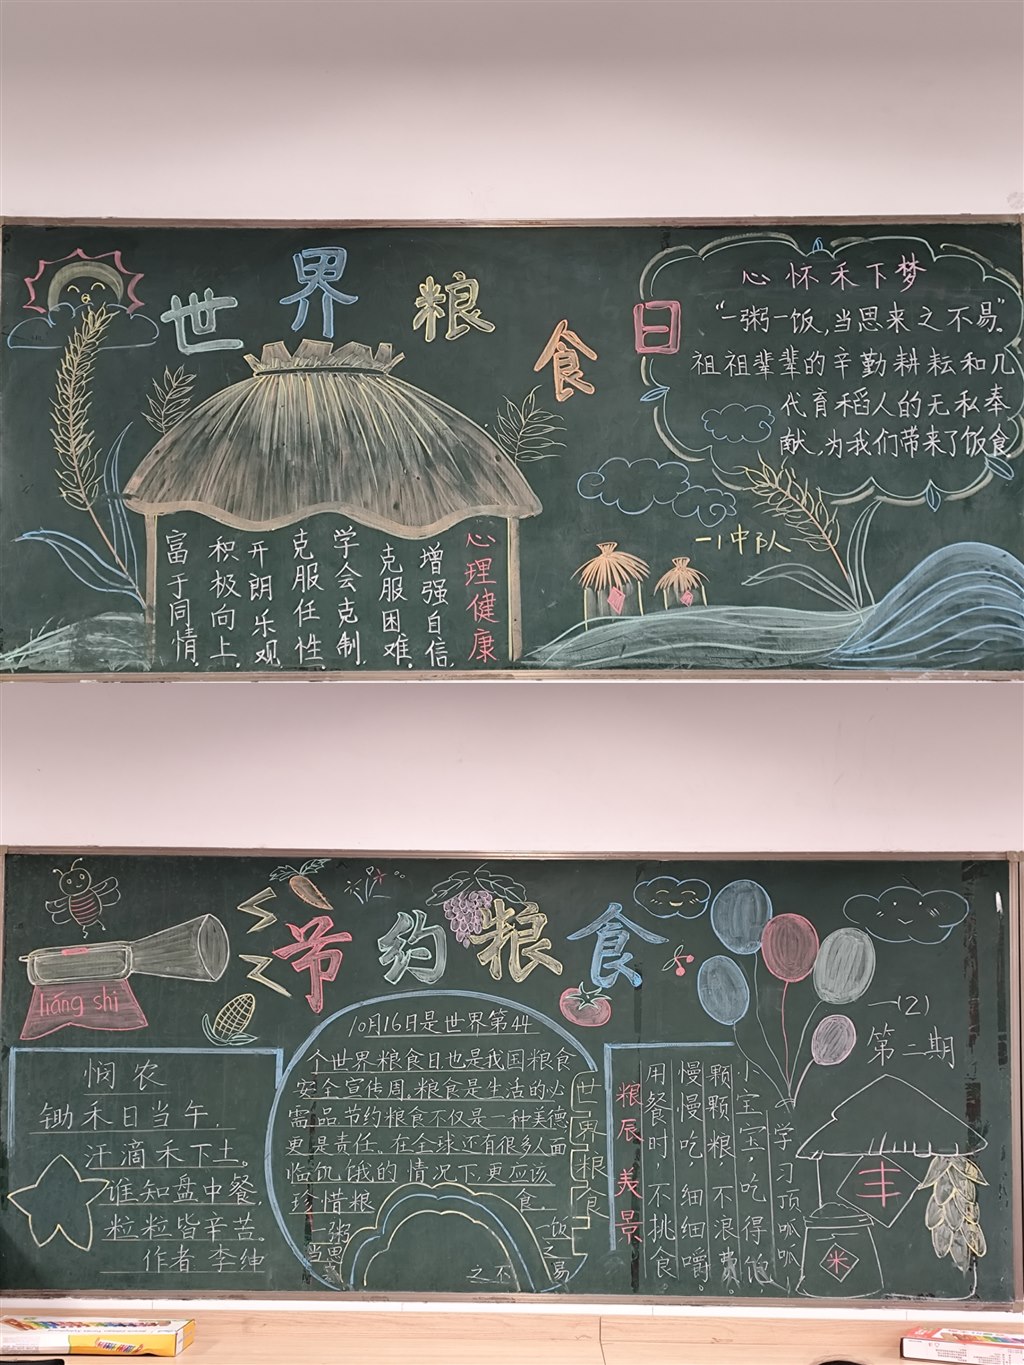 世界粮食日
心怀禾下梦
“一粥一饭，当思来之不易。”
祖祖辈辈的辛勤耕耘和几
代育稻人的无私奉
献，为我们带来了饭食
一1中队
心理健康
增强自信，
克服困难，
学会克制，
克服任性，
开朗乐观，
积极向上，
富于同情。
节约粮食
liáng shi
悯农
锄禾日当午，
汗滴禾下土。
谁知盘中餐，
粒粒皆辛苦。
作者 李绅
10月16日是世界第44
个世界粮食日，也是我国粮食
安全宣传周。粮食是生活的必
需品节约粮食不仅是一种美德
更是责任。在全球还有很多人面
临饥饿的情况下，更应该
珍惜粮食。
一粥一饭
当思来之不易
世界粮食
粮辰美景
小宝宝，吃得饱，学习顶呱呱，
颗颗粮，不浪费。
慢慢吃，细细嚼。
用餐时，不挑食。
一(2)
第二期
丰
米